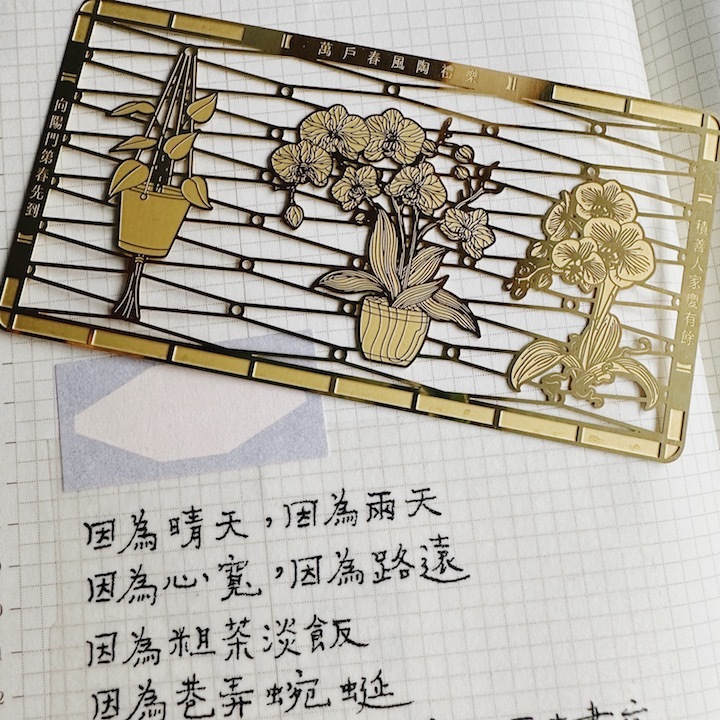 萬戶春風陶禮樂
向陽門第春先到
積善人家慶有餘
因為晴天，因為雨天
因為心寬，因為路遠
因為粗茶淡飯
因為巷弄蜿蜒